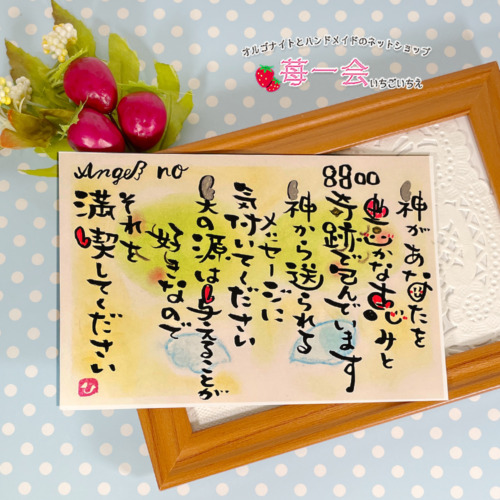 オルゴナイトとハンドメイドのネットショップ
苺一会
いちごいちえ
Angel no
8800
神があなたを
豊かな恵みと
奇跡で包んでいます
神から送られる
メッセージに
気付いてください
大の源は与えることが
好きなので
それを
満喫してください
ひ